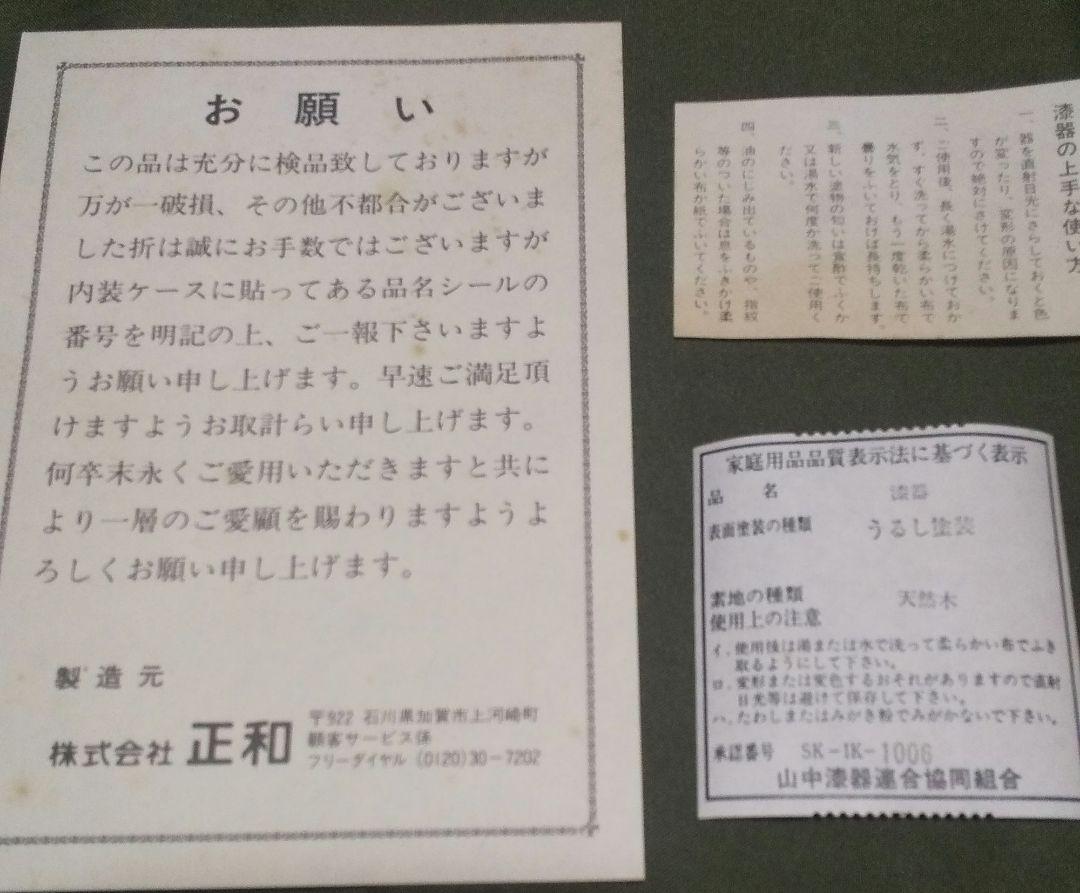 お願い
この品は充分に検品致しておりますが
万が一破損、その他不都合がございま
した折は誠にお手数ではございますが
内装ケースに貼ってある品名シールの
番号を明記の上、ご一報下さいますよ
うお願い申し上げます。早速ご満足頂
けますようお取計らい申し上げます。
何卒末永くご愛用いただきますと共に
より一層のご愛顧を賜わりますようよ
ろしくお願い申し上げます。
製造元
株式会社 正和
〒922 石川県加賀市上河崎町
顧客サービス係
フリーダイヤル (0120)30-7202
漆器の上手な使い方
一、器を直射日光にさらしておくと色
が変ったり、変形の原因になりま
すので絶対にさけてください。
二、ご使用後、長く湯水につけておか
ず、すぐ洗ってから柔らかい布で
水気をとり、もう一度乾いた布で
曇りをふいておけば長持ちします。
三、新しい塗物の匂いは食酢でふくか
又は湯水で何度か洗ってご使用く
ださい。
四、油のにじみ出ているものや、指紋
等のついた場合は息をふきかけ柔
らかい布か紙でふいてください。
家庭用品品質表示法に基づく表示
品名 漆器
表面塗装の種類 うるし塗装
素地の種類 天然木
使用上の注意
イ.使用後は湯または水で洗って柔らかい布でふき
取るようにして下さい。
ロ.変形または変色するおそれがありますので直射
日光等は避けて保存して下さい。
ハ.たわしまたはみがき粉でみがかないで下さい。
承認番号 SK-IK-1006
山中漆器連合協同組合